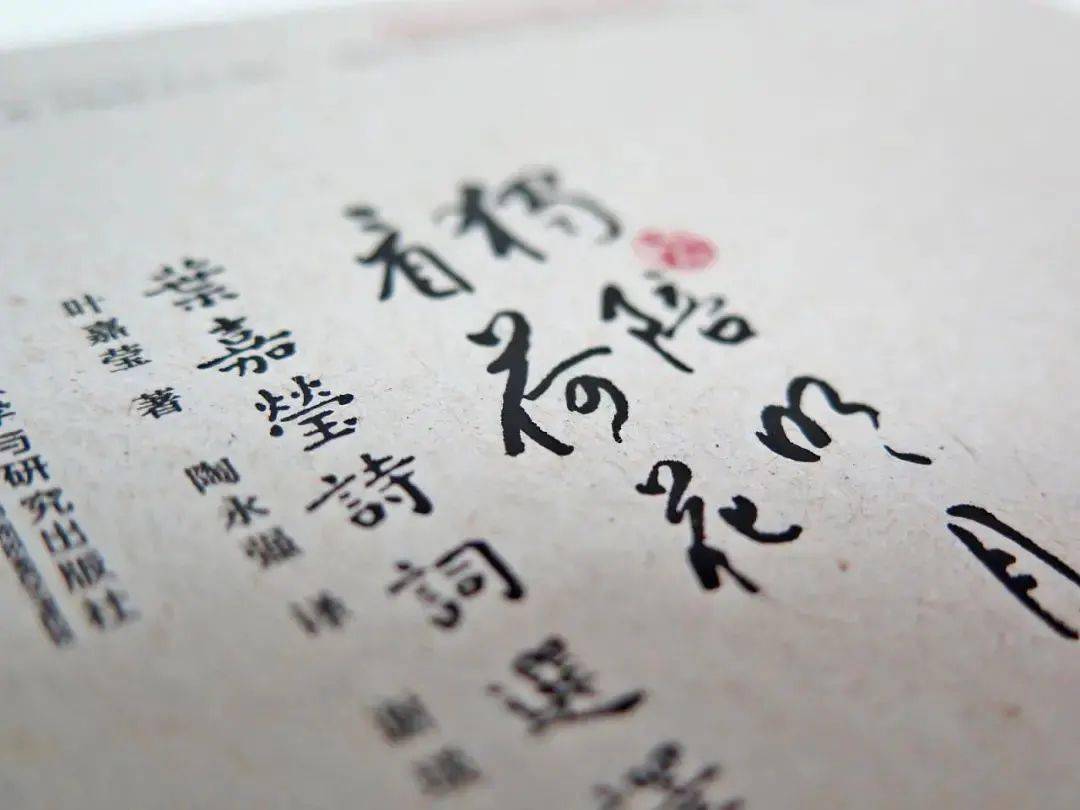 獨陪明月
看荷花
葉嘉瑩詩詞選譯
叶嘉莹 著 陶永强 译
学与研究出版社